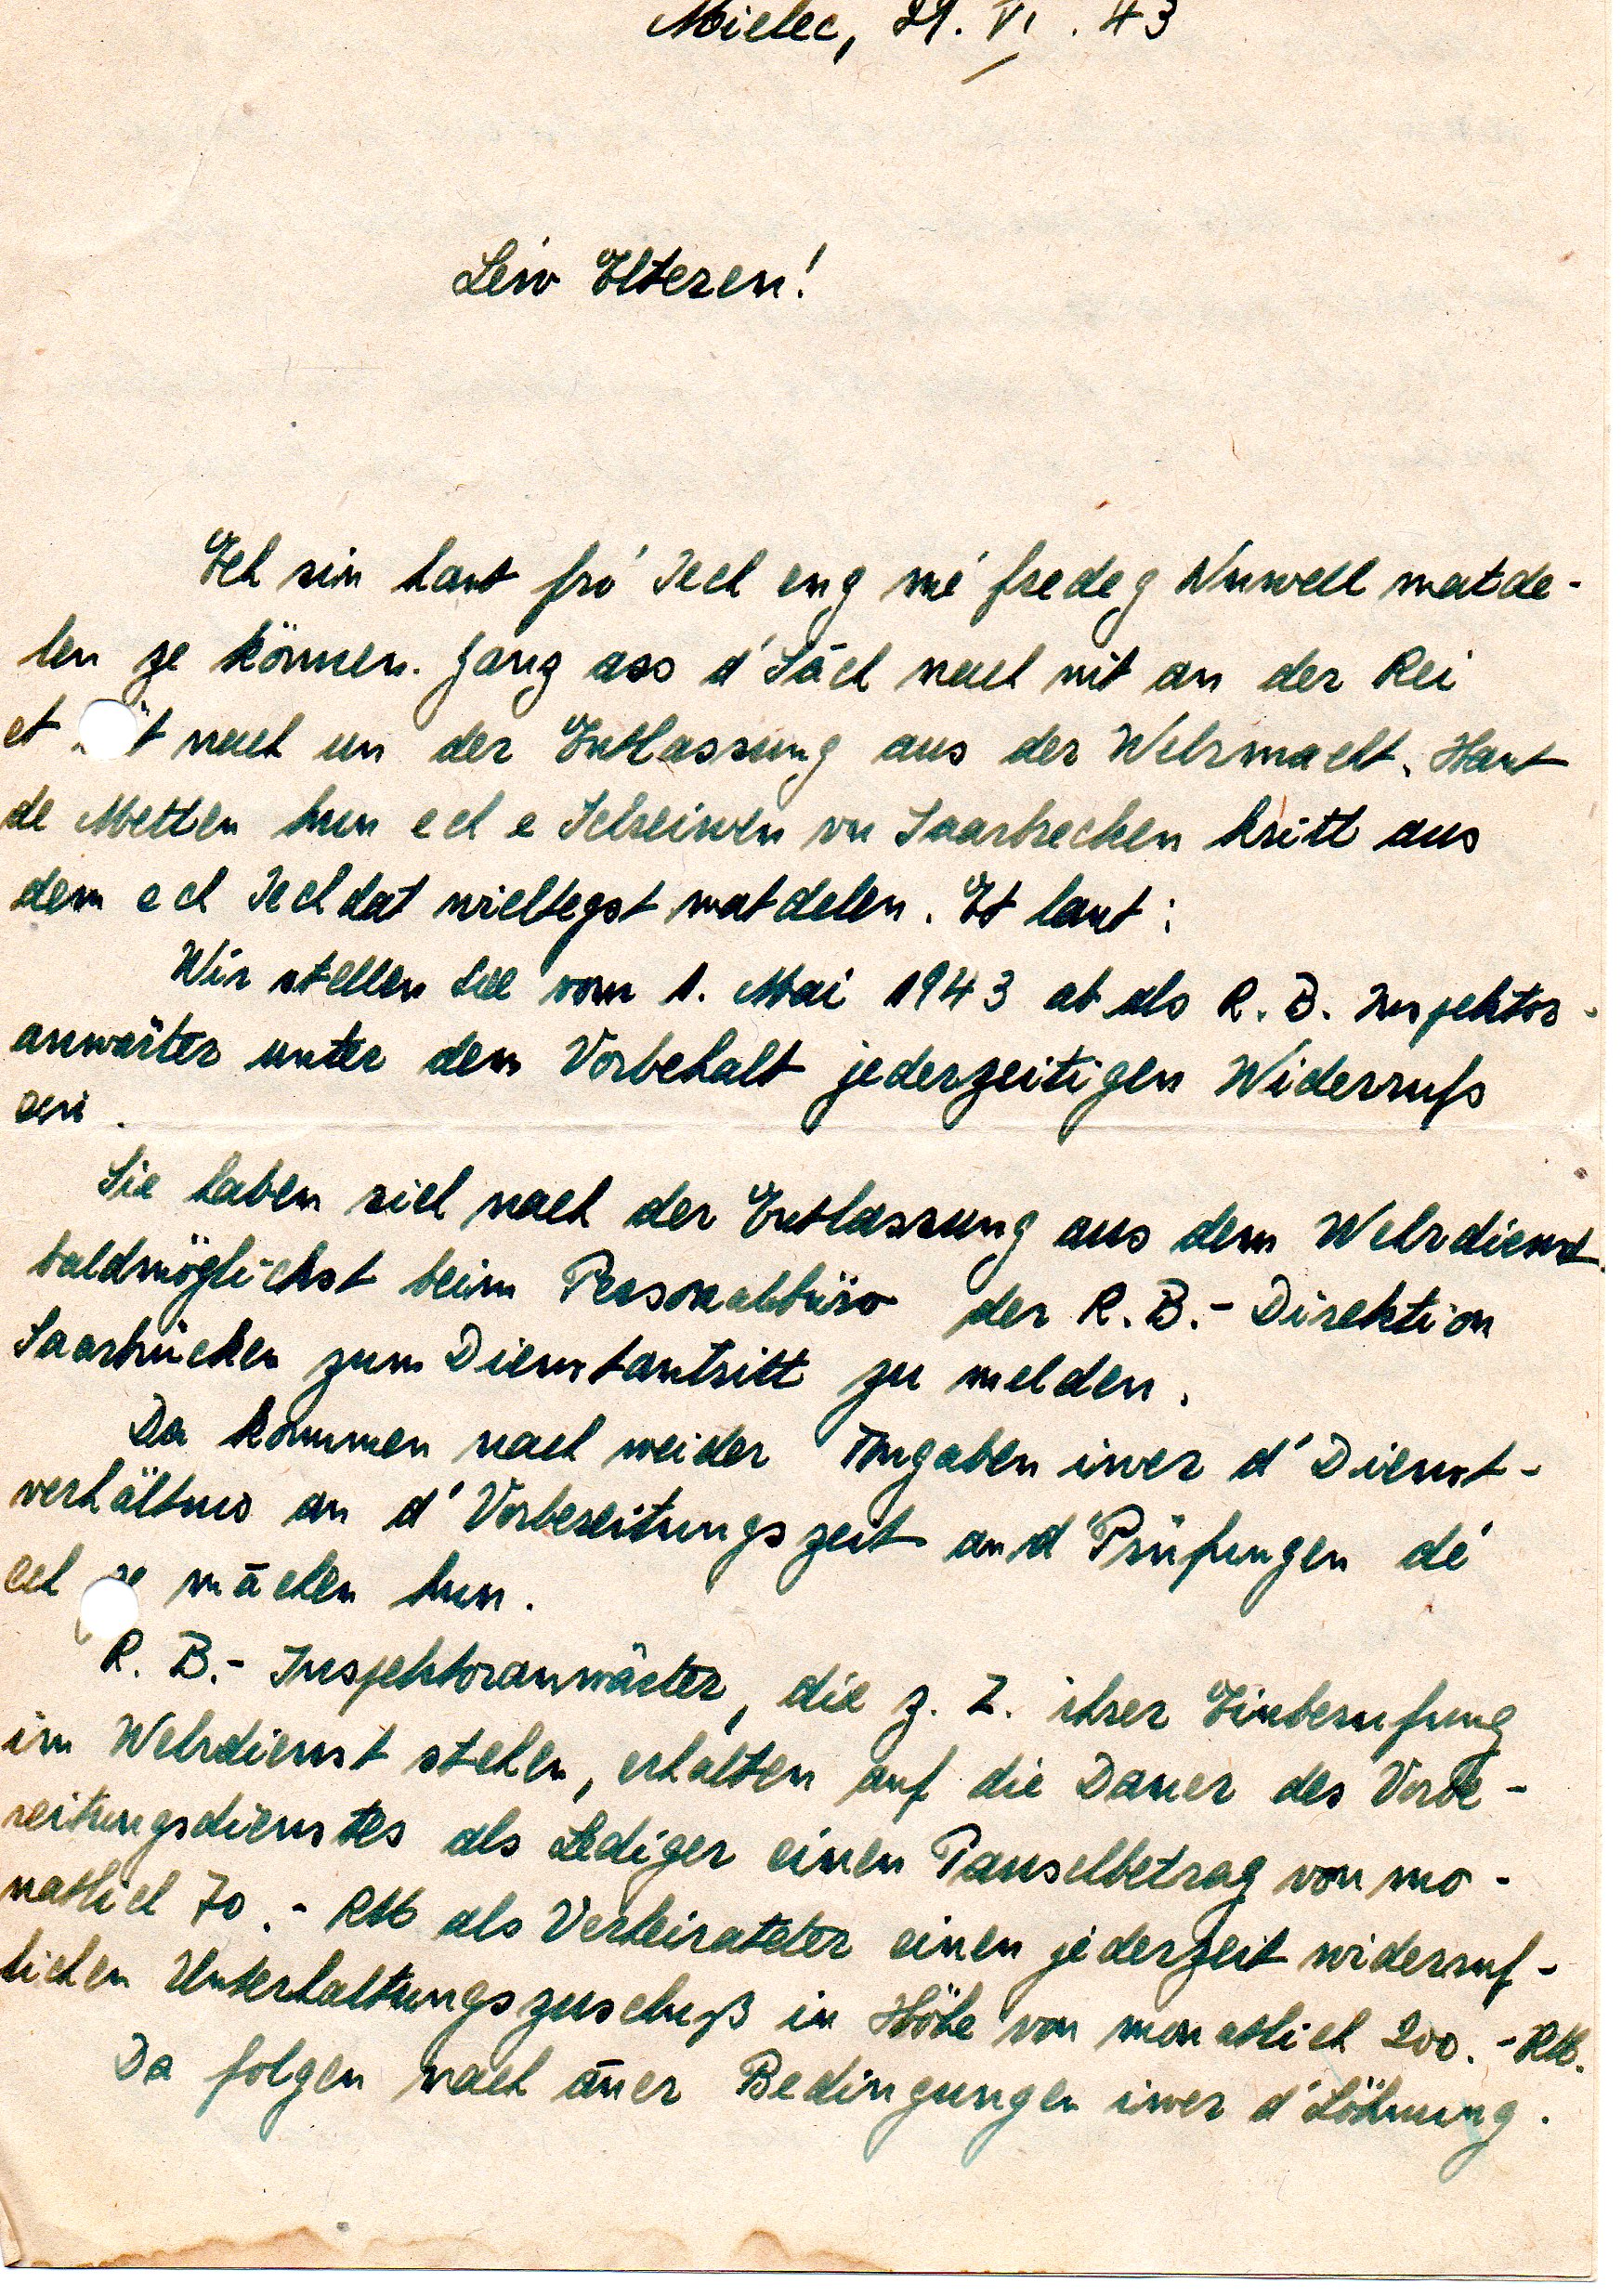 Mielec, 29. VI. 43
Leiw Elteren!
Ech sin haut fro' Iech eng mé fredeg Nuwell matde-
len ze können. Ganz ass d'Säch nach nit an der Rei
et nach un der Entlassung aus der Wehrmacht. Haut
de Metten hun ech e Schreiwen vu Saarbrecken kritt aus
dem ech Iech dat wichtegst matdelen. Et laut:
Wir stellen Sie vom 1. Mai 1943 ab als R. B. Inspektor-
anwärter unter dem Vorbehalt jederzeitigen Widerrufs
ein.
Sie haben sich nach der Entlassung aus dem Wehrdienst
baldmöglichst beim Personalbüro der R. B.- Direktion
Saarbrücken zum Dienstantritt zu melden.
Da kommen nach weider Angaben iwer d'Dienst-
verhältnis an d'Vorbereitungszeit an d'Prüfungen dé
ech ze mächen hun.
R. B.- Inspektoranwärter, die z. Z. ihrer Einberufung
im Wehrdienst stehen, erhalten auf die Dauer des Vorbe-
reitungsdienstes als Lediger einen Pauschbetrag von mo-
natlich 70.- RM als Verheirateter einen jederzeit widerruf-
lichen Unterhaltungszuschuß in Höhe von monatlich 200.- RM.
Da folgen nach äner Bedingungen iwer d'Löhnung.